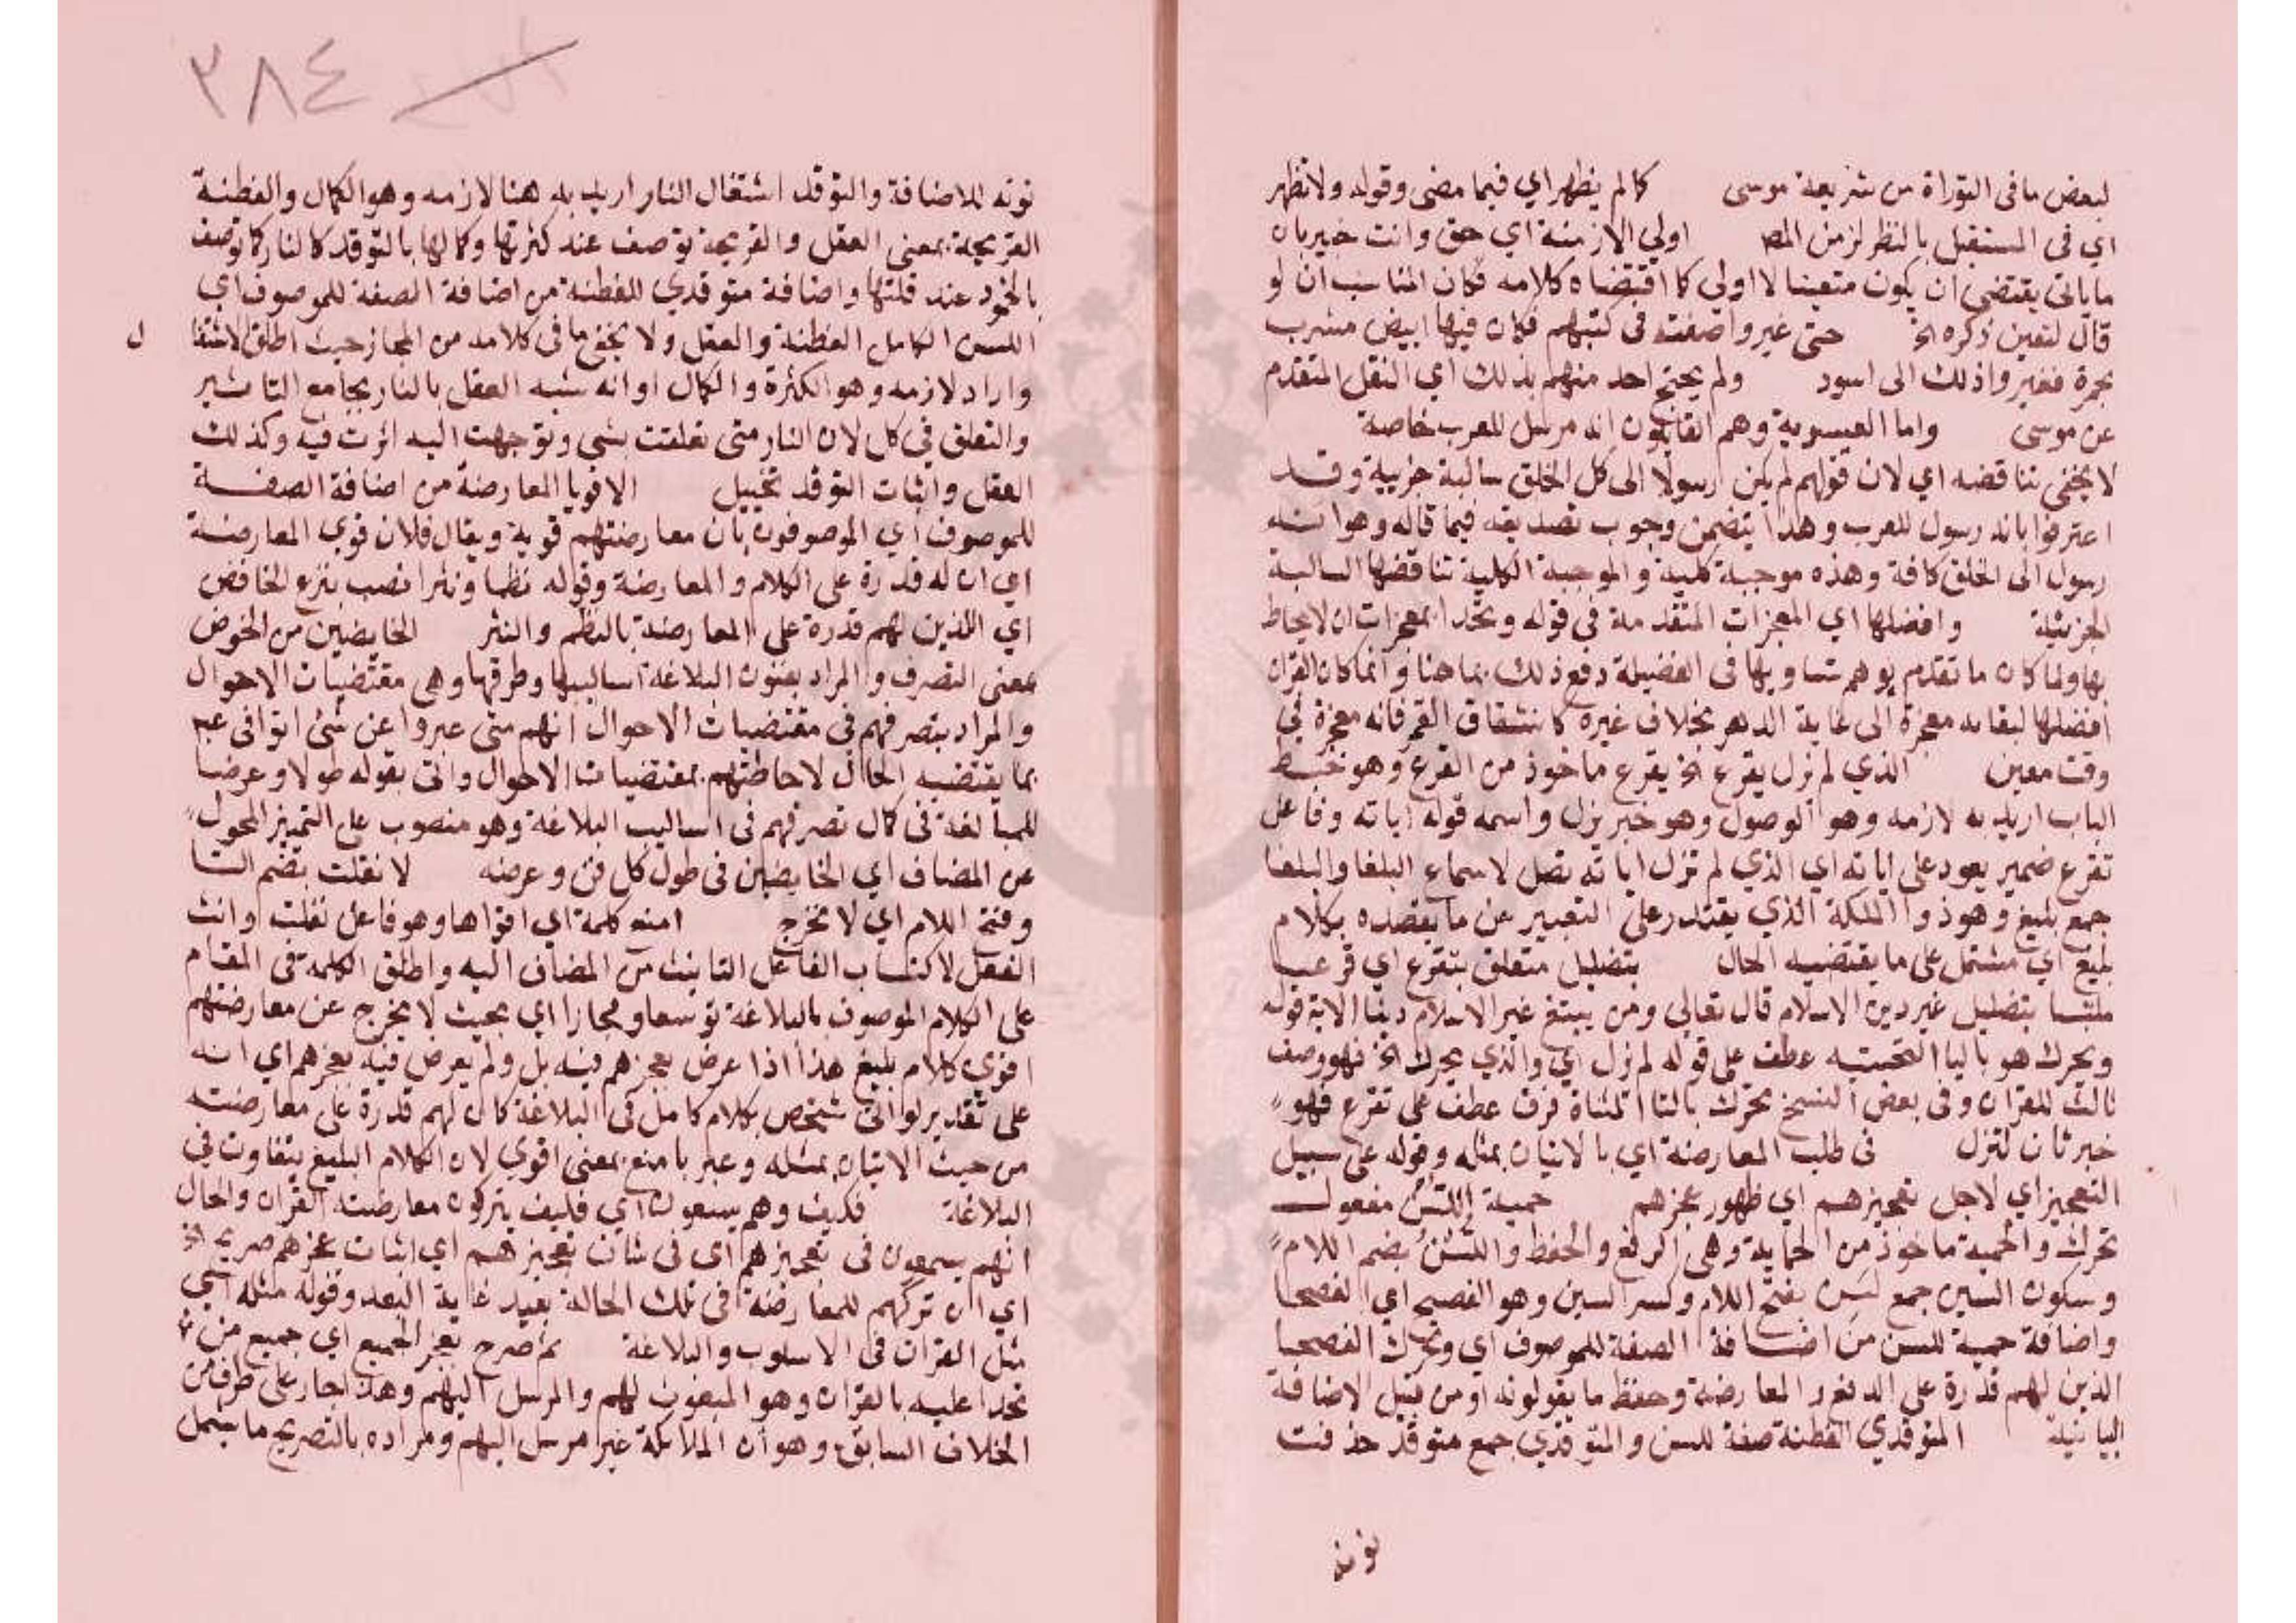 لبعض ما فى التوراة من شريعة موسى كما لم يظهر اي فيما مضى وقوله ولا تظهر
اي فى المستقبل بالنظر لزمن المص اولي الازمنة اي حق وانت خبير بان
ما ياتى يقتضي ان يكون متعينا لا اولى كما اقتضاه كلامه فكان المناسب ان لو
قال لتعين ذكره الخ حتى غيروا صفته فى كتبهم فكان فيها ابيض مشرب
بحمرة فغيروا ذلك الى اسود ولم يحتج احد منهم بذلك اي النقل المتقدم
عن موسى واما العيسوية وهم القايلون انه مرسل للعرب خاصة
لا يخفى تناقضه اي لان قولهم لم يكن رسولا الى كل الخلق سالبة جزيية وقد
اعترفوا بانه رسول للعرب وهذا يتضمن وجوب تصديقه فيما قاله وهو انه
رسول الى الخلق كافة وهذه موجبة كلية والموجبة الكلية تناقضها السالبة
الجزيئة وافضلها اي المعجزات المتقدمة في قوله وتحدا بمعجزات لا يحاط
بها ولما كان ما تقدم يوهم تساويها فى الفضيلة دفع ذلك بما هنا وانما كان القران
افضلها لبقايه معجزة الى غاية الدهر بخلاف غيره كانشقاق القمر فانه معجزة في
وقت معين الذي لم تزل يقرع الخ يقرع ماخوذ من القرع وهو خبط
الباب اريد به لازمه وهو الوصول وهو خبر يزل واسمه قوله اياته وفاعل
تقرع ضمير يعود على اياته اي الذي لم تزل اياته تصل لاسماع البلغا والبلغا
جمع بليغ وهو ذو الملكة الذي يقتدر على التعبير عن ما يقصده بكلام
بليغ اي مشتمل على ما يقتضيه الحال بتضليل متعلق بتقرع اي قرعا
ملتبسا بتضليل غير دين الاسلام قال تعالى ومن يبتغ غير الاسلام دينا الاية قوله
ويحرك هو باليا التحتية عطف على قوله لم تزل اي والذي يحرك الخ فهو وصف
ثالث للقران وفى بعض النسخ تحرك بالتا المثناة فوق عطف على تقرع فهو
خبر ثان لتزل فى طلب المعارضة اي بالاتيان بمثله وقوله على سبيل
التعجيز اي لاجل تعجيزهم اي ظهور عجزهم حمية اللسن مفعول
تحرك والحمية ماخوذ من الحماية وهى الدفع والحفظ واللسن بضم اللام
وسكون السين جمع لسن بفتح اللام وكسر السين وهو الفصيح اي الفصحا
واضافة حمية للسن من اضافة الصفة للموصوف اي وتحرك الفصحا
الذين لهم قدرة على الدفع والمعارضة وحفظ ما يقولونه او من قبيل الاضافة
البيانية المتوقدي الفطنة صفة للسن والمتوقدي جمع متوقد حذفت
نونه
٣٨٤
نونه للاضافة والتوقد اشتغال النار اريد به هنا لازمه وهو الكمال والفطنة
القريحة بمعنى العقل والقريحة توصف عند كثرتها وكمالها بالتوقد كالنار كما توصف
بالخمود عند قلتها واضافة متوقدي للفطنة من اضافة الصفة للموصوف اي
اللسن الكامل الفطنة والعقل ولا يخفى ما فى كلامه من المجاز حيث اطلق الاشتغا ل
واراد لازمه وهو الكثرة والكمال او انه شبه العقل بالنار بجامع التاثير
والتعلق في كل لان النار متى تعلقت بشى وتوجهت اليه اثرت فيه وكذلك
العقل واثبات التوقد تخييل الاقويا المعارضة من اضافة الصفة
للموصوف اي الموصوفون بان معارضتهم قوية ويقال فلان قوي المعارضة
اي ان له قدرة على الكلام والمعارضة وقوله نظما ونثرا نصب بنزع الخافض
اي الذين لهم قدرة على المعارضة بالنظم والنثر الخايضين من الخوض
بمعنى التصرف والمراد بفنون البلاغة اساليبها وطرقها وهى مقتضيات الاحوال
والمراد بتصرفهم فى مقتضيات الاحوال انهم متى عبروا عن شئ اتوا فى عم
بما يقتضيه الحال لاحاطتهم بمقتضيات الاحوال واتى بقوله طولا وعرضا
للمبالغة فى كمال تصرفهم فى اساليب البلاغة وهو منصوب على التمييز المحول
عن المضاف اي الخايضين فى طول كل فن وعرضه لا تفلت بضم التا
وفتح اللام اي لا تخرج امنع كلمة اي اقواها وهو فاعل تفلت وانث
الفعل لاكتساب الفاعل التانيث من المضاف اليه واطلق الكلمة فى المقام
على الكلام الموصوف بالبلاغة توسعا ومجازا اي بحيث لا يخرج عن معارضتهم
اقوى كلام بليغ هذا اذا عرض بعجزهم فيه بل ولم يعرض فيه بعجزهم اي انه
على تقدير لو اتى شخص بكلام كامل فى البلاغة كان لهم قدرة على معارضته
من حيث الاتيان بمثله وعبر بامنع بمعنى اقوي لان الكلام البليغ يتفاوت في
البلاغة فكيف وهم يسمعون اي فكيف يتركون معارضة القران والحال
انهم يسمعون فى تعجيزهم اى فى شان تعجيزهم اي اثبات عجزهم صريحه الخ
اي ان تركهم للمعارضة فى تلك الحالة بعيد غاية البعد وقوله مثله اي
مثل القران فى الاسلوب والبلاغة ثم صرح بعجز الجميع اي جميع من
تحدا عليه بالقران وهو المبعوث لهم والمرسل اليهم وهذا جار على طرف من
الخلاف السابق وهو ان الملائكة غير مرسل اليهم ومراده بالتصريح ما يشمل